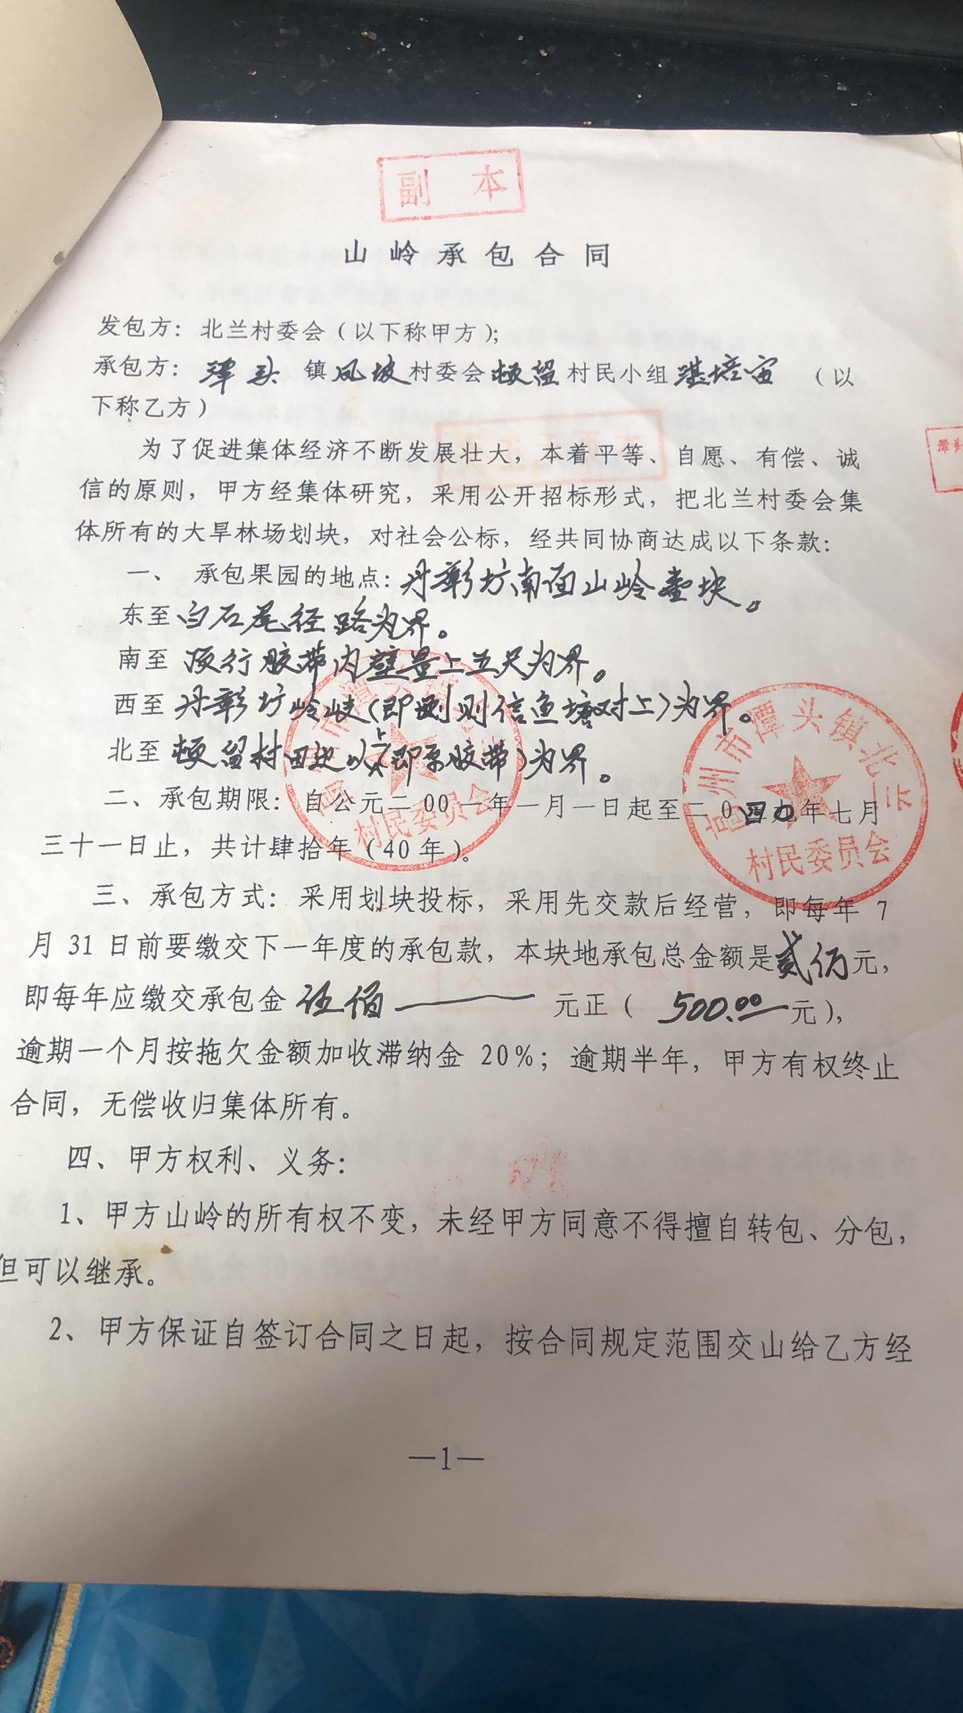 副 本
山岭承包合同
发包方：北兰村委会（以下称甲方）；
承包方：潭头镇凤坡村委会埂留村民小组湛培宙（以
下称乙方）
为了促进集体经济不断发展壮大，本着平等、自愿、有偿、诚
信的原则，甲方经集体研究，采用公开招标形式，把北兰村委会集
体所有的大旱林场划块，对社会公标，经共同协商达成以下条款：
一、 承包果园的地点：丹彰坊南面山岭壹块。
东至白石尾径路为界。
南至顶行胶带内壁量上五尺为界。
西至丹彰坊岭峡（即则信鱼塘对上）为界。
北至埂留村田边以上（即原胶带）为界。
二、承包期限：自公元二00一年一月一日起至二0四九年七月
三十一日止，共计肆拾年（40年）。
三、承包方式：采用划块投标，采用先交款后经营，即每年 7
月 31 日前要缴交下一年度的承包款，本块地承包总金额是贰佰元，
即每年应缴交承包金 伍佰 元正（ 500.00 元），
逾期一个月按拖欠金额加收滞纳金 20%；逾期半年，甲方有权终止
合同，无偿收归集体所有。
四、甲方权利、义务：
1、甲方山岭的所有权不变，未经甲方同意不得擅自转包、分包，
但可以继承。
2、甲方保证自签订合同之日起，按合同规定范围交山给乙方经
—1—
州市潭头镇北兰
村民委员会
村民委员会